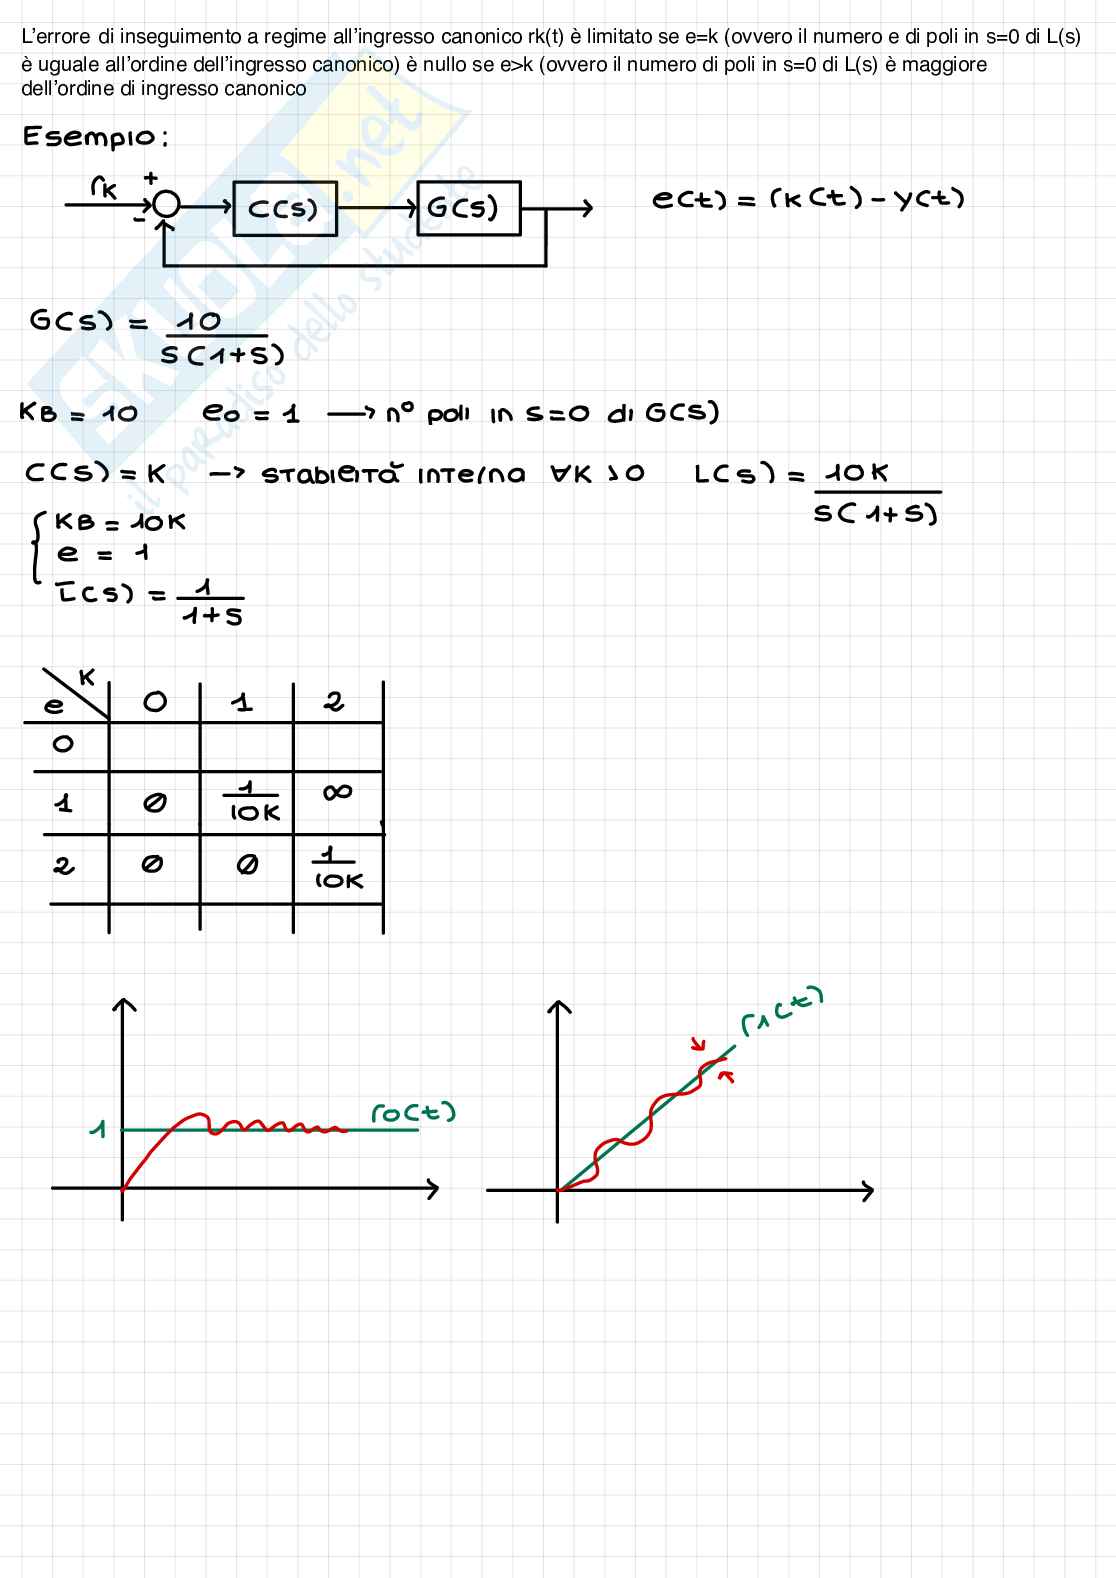 L'errore di inseguimento a regime all'ingresso canonico rk(t) è limitato se e=k (ovvero il numero e di poli in s=0 di L(s)
è uguale all'ordine dell'ingresso canonico) è nullo se e>k (ovvero il numero di poli in s=0 di L(s) è maggiore
dell'ordine di ingresso canonico
Esempio:
rk + - C(s) G(s) e(t) = rk(t) - y(t)
G(s) = 10 / s(1+s)
KB = 10 e0 = 1 → n° poli in s=0 di G(s)
C(s) = K → stabilità interna ∀K>0 L(s) = 10K / s(1+s)
{ KB = 10K
e = 1
L̅(s) = 1 / 1+s
e \ K 0 1 2
0
1 0 1/10K ∞
2 0 0 1/10K
r1(t)
1 r0(t)
SKUOLA.net
il paradiso dello studente